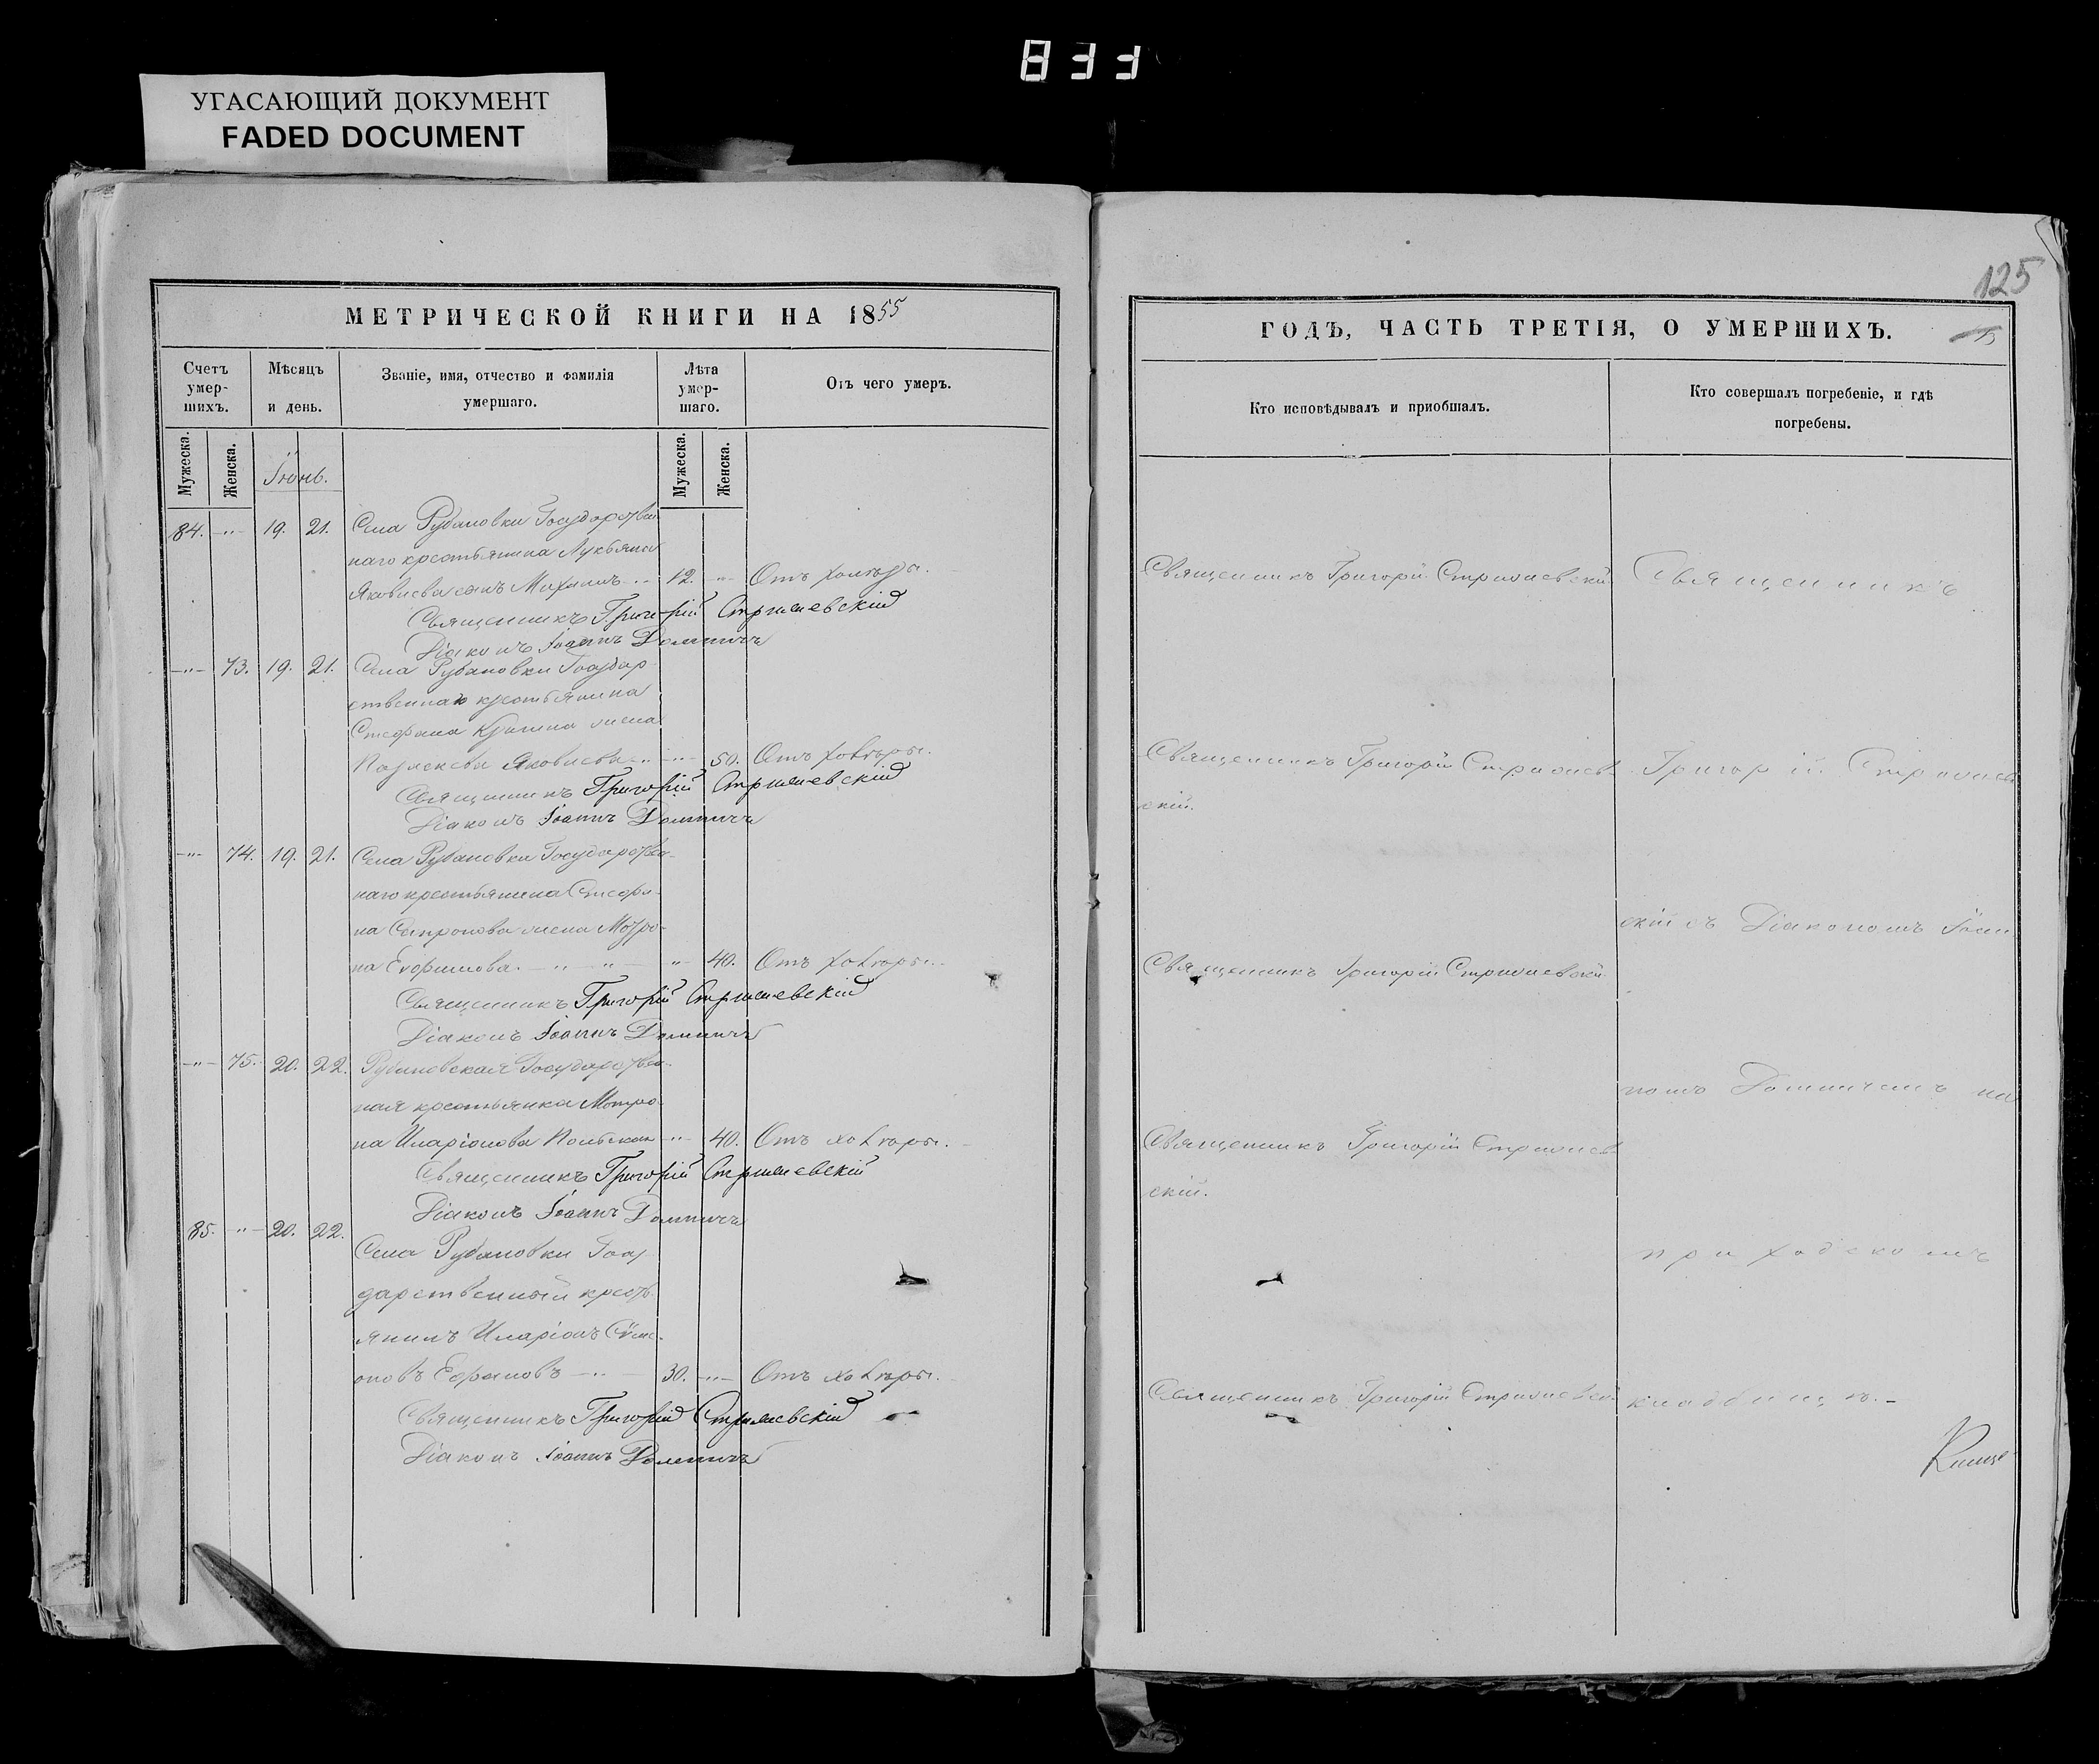 833
УГАСАЮЩИЙ ДОКУМЕНТ
FADED DOCUMENT
МЕТРИЧЕСКОЙ КНИГИ НА 1855
Счетъ умер-шихъ.
Мѣсяцъ и день.
Званіе, имя, отчество и фамилія умершаго.
Лѣта умер-шаго.
Отъ чего умеръ.
Мужеска.
Женска.
Іюнь.
Мужеска.
Женска.
84. -"- 19. 21. Села Рубановки Государствен
наго крестьянина Лукьяна
Яковлева сынъ Михаилъ 12. -"- Отъ холеры.
Священникъ Григорій Стрижевскій
Діаконъ Іоаннъ
-"- 73. 19. 21. Села Рубановки Государ
ственнаго крестьянина
Стефана жена
Яковлева -"- 50. Отъ холеры.
Священникъ Григорій Стрижевскій
Діаконъ Іоаннъ
-"- 74. 19. 21. Села Рубановки Государствен-
наго крестьянина Стефа-
на Сапронова жена Мотро-
на -"- 40. Отъ холеры.
Священникъ Григорій Стрижевскій
Діаконъ Іоаннъ
-"- 75. 20. 22. Рубановская Государствен-
ная крестьянка Мотро-
на Иларіонова -"- 40. Отъ холеры.
Священникъ Григорій Стрижевскій
Діаконъ Іоаннъ
85. -"- 20. 22.
Села Рубановки Госу
дарственный кресть
янинъ Иларіонъ Сѵме-
оновъ 30. -"- Отъ холеры.
Священникъ Григорій Стрижевскій
Діаконъ Іоаннъ
125
ГОДЪ, ЧАСТЬ ТРЕТІЯ, О УМЕРШИХЪ.
Кто исповѣдывалъ и приобщалъ.
Кто совершалъ погребеніе, и гдѣ погребены.
Священникъ Григорій Стрижевскій
Священникъ Григорій Стрижев-
скій.
Священникъ Григорій Стрижевскій
Священникъ Григорій Стрижев-
скій.
Священникъ Григорій Стрижевскій
Священникъ
Григорій Стрижев
скій съ Діакономъ Іоан
номъ на
приходскомъ
кладбищѣ.-